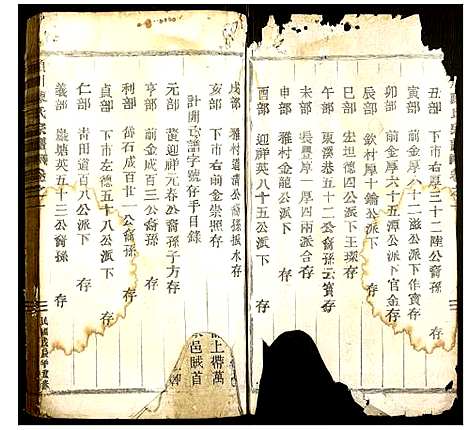 丑部 下市右厚三十二陞公裔孫 存
寅部 前金厚八十二滋公派下作賓存
卯部 前金厚六十五潭公派下官金存
辰部 欽村厚十鏞公派下 存
巳部 宏坦德四公派下王琛存
午部 東溪巷五十二公裔孫云賓存
未部 長豐一四兩派合存
申部 前村金龍公派下 存
酉部 迎祥英八十五公派下 存
戌部 雅村道滿公裔孫振水存
亥部 下市右前金崇照存
計開ⵈ譜字號存于目錄
元部 黃迎祥元春公裔孫子方存
亨部 前金成百三公裔孫 存
利部 岱石成百廿一公裔孫 存
貞部 下市左德五十八公派下 存
仁部 青田道百八公派下 存
義部 巖塘英五十三公裔孫 存
陳氏宗譜 卷之
上帶萬
邑賊首